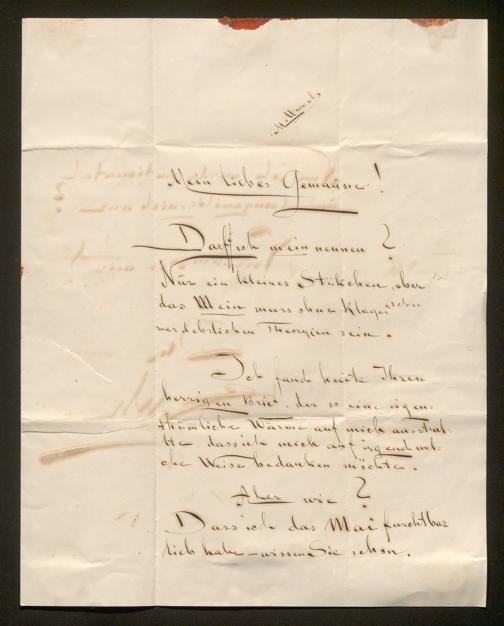 Mein liebes Gemaüse!
Darf ich mein nennen?
Nur ein kleines Stükchen, aber
das Mein muss ohne Klage
sein.
Ich fand heute Ihren
herzigen Brief, der so eine eigen-
thümliche Wärme auf mich ausströ
te dass ich mich auf irgend wel-
che Weise bedanken möchte.
Aber wie?
Dass ich das Mai furchtbar
lieb habe – wissen Sie schon.